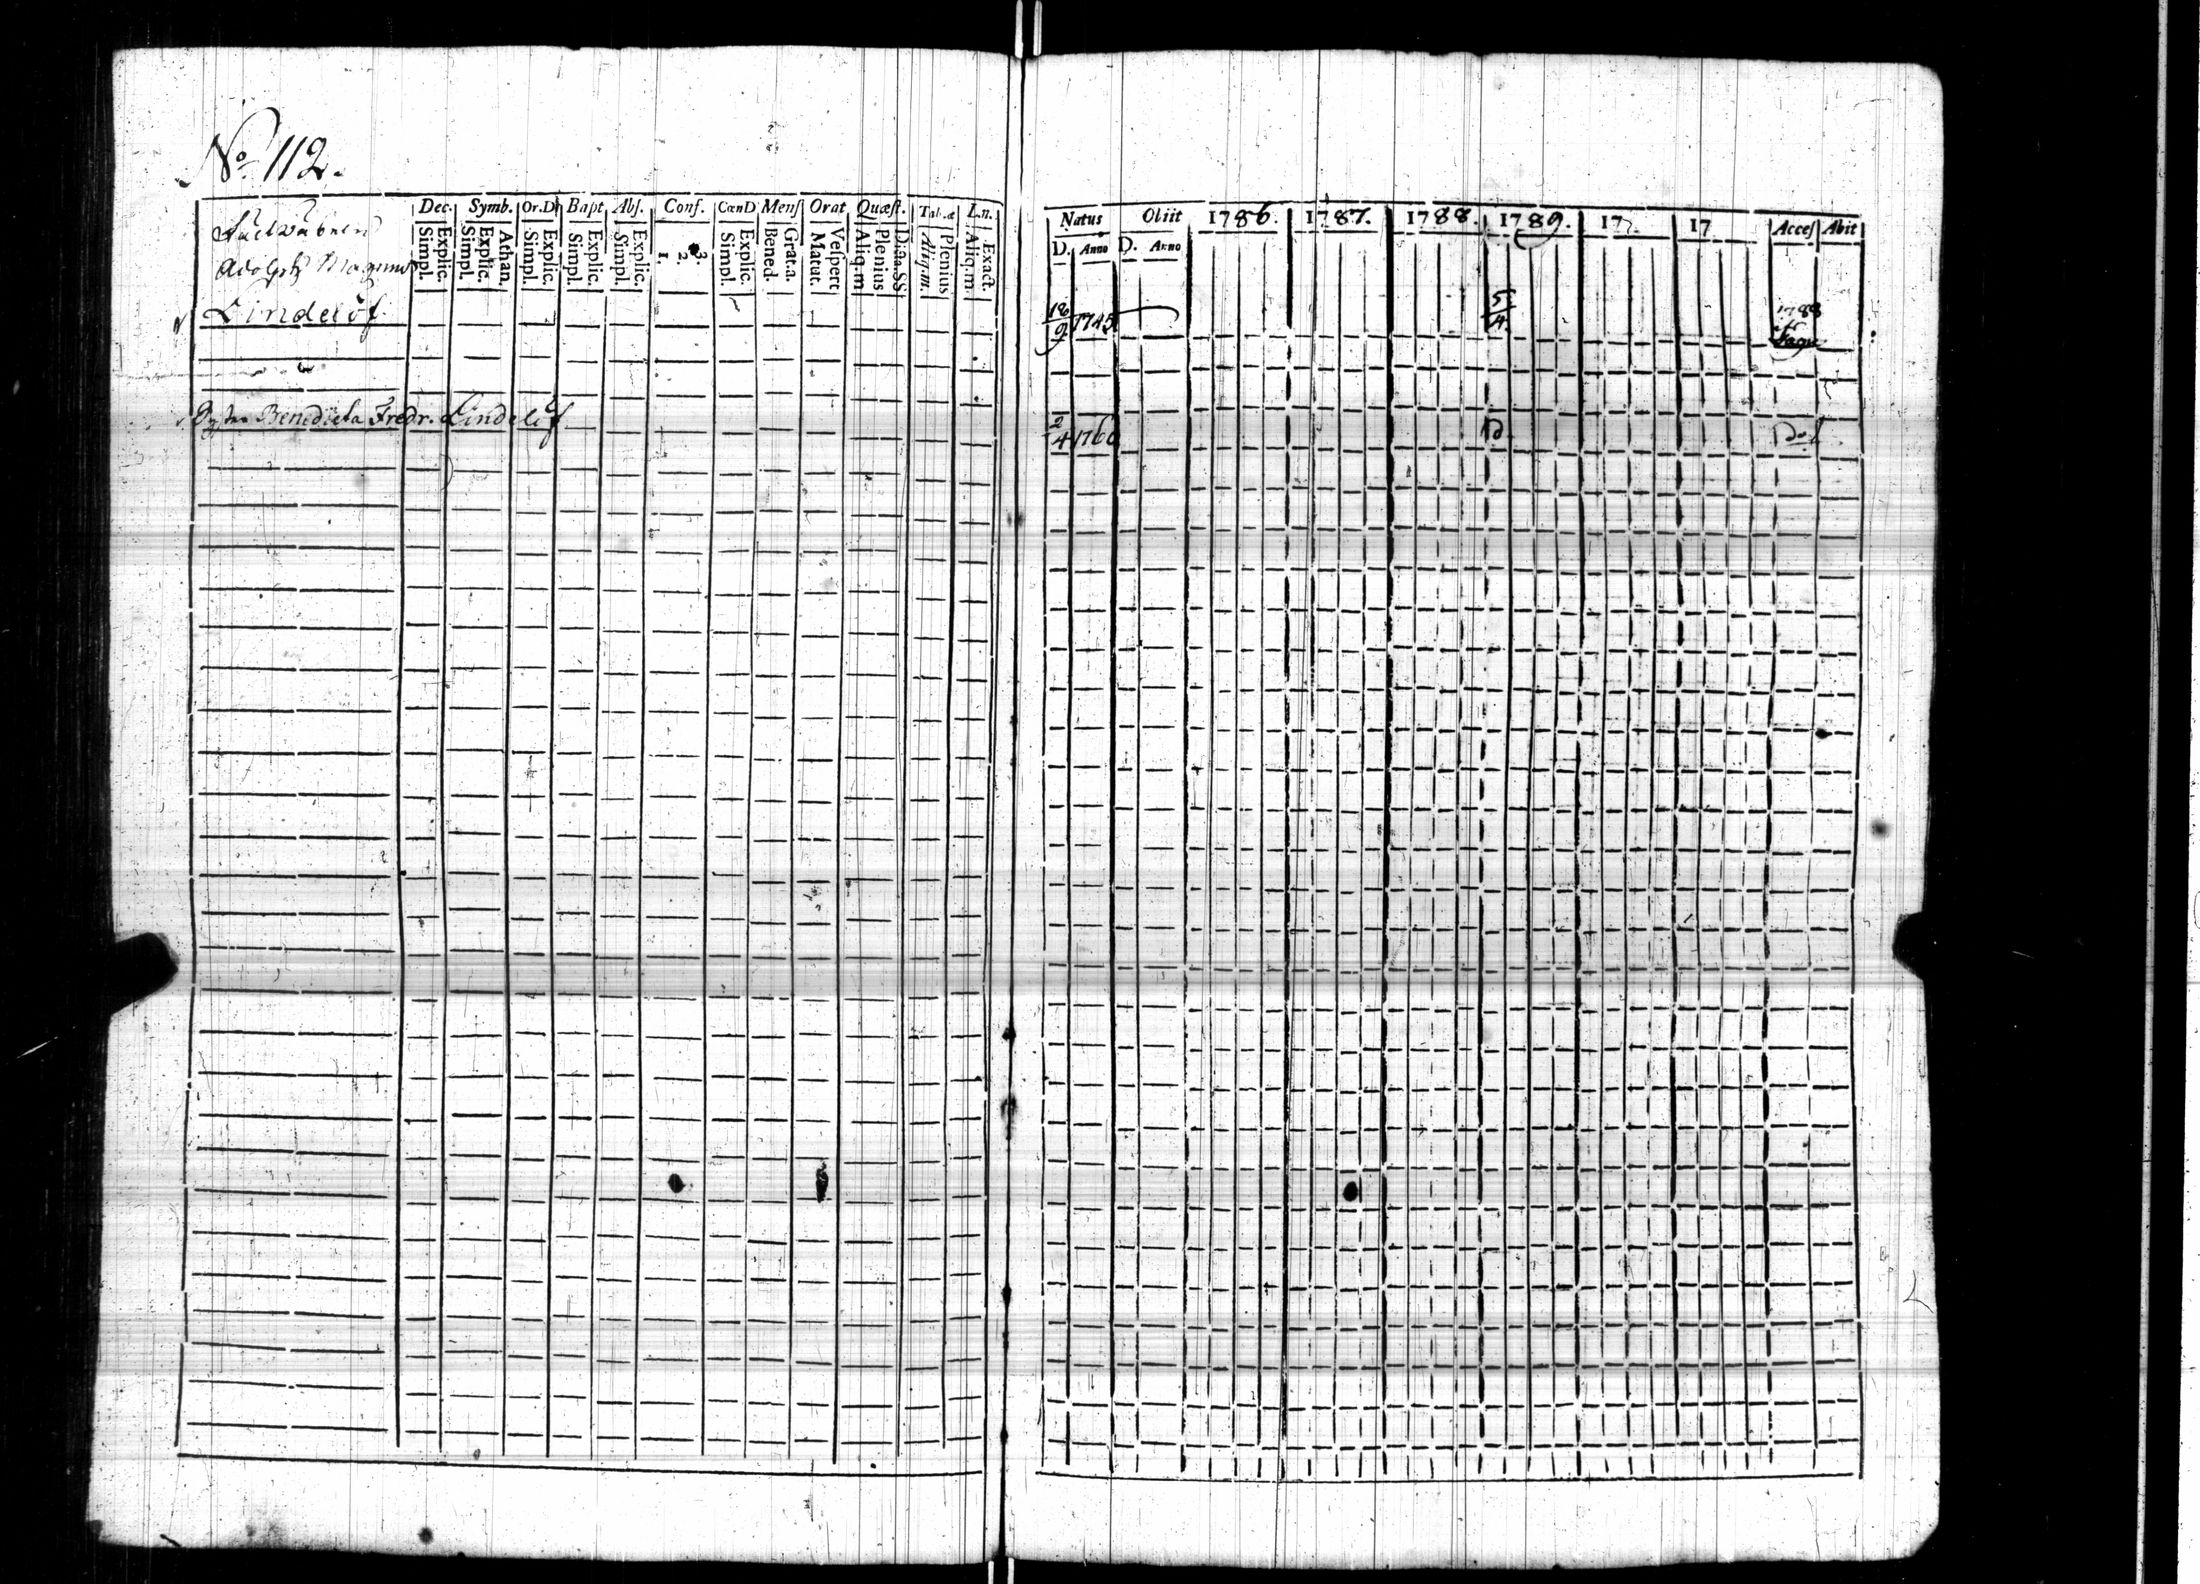 No 112.
Dec. Symb. Or.D Bapt Abs. Conf. CœnD Mens Orat Quæst. Tab.æ L.n.
Simpl. Explic. Simpl. Explic. Athan. Simpl. Explic. Simpl. Explic. Simpl. Explic. 1. 2. 3 Simpl. Explic. Bened. Grat.a. Matut. Vespert Aliq.m Plenius Dicta.SS Aliq.m. Plenius Aliq.m. Exact.
Adolph Magnus
Lindelöf.
Benedicta Fredr. Lindelöf
Natus Obiit 1786. 1787. 1788. 1789. 17 17 Acces Abit
D. Anno D. Anno
18/9 1745 5/4. 1788
2/4 1760 D.